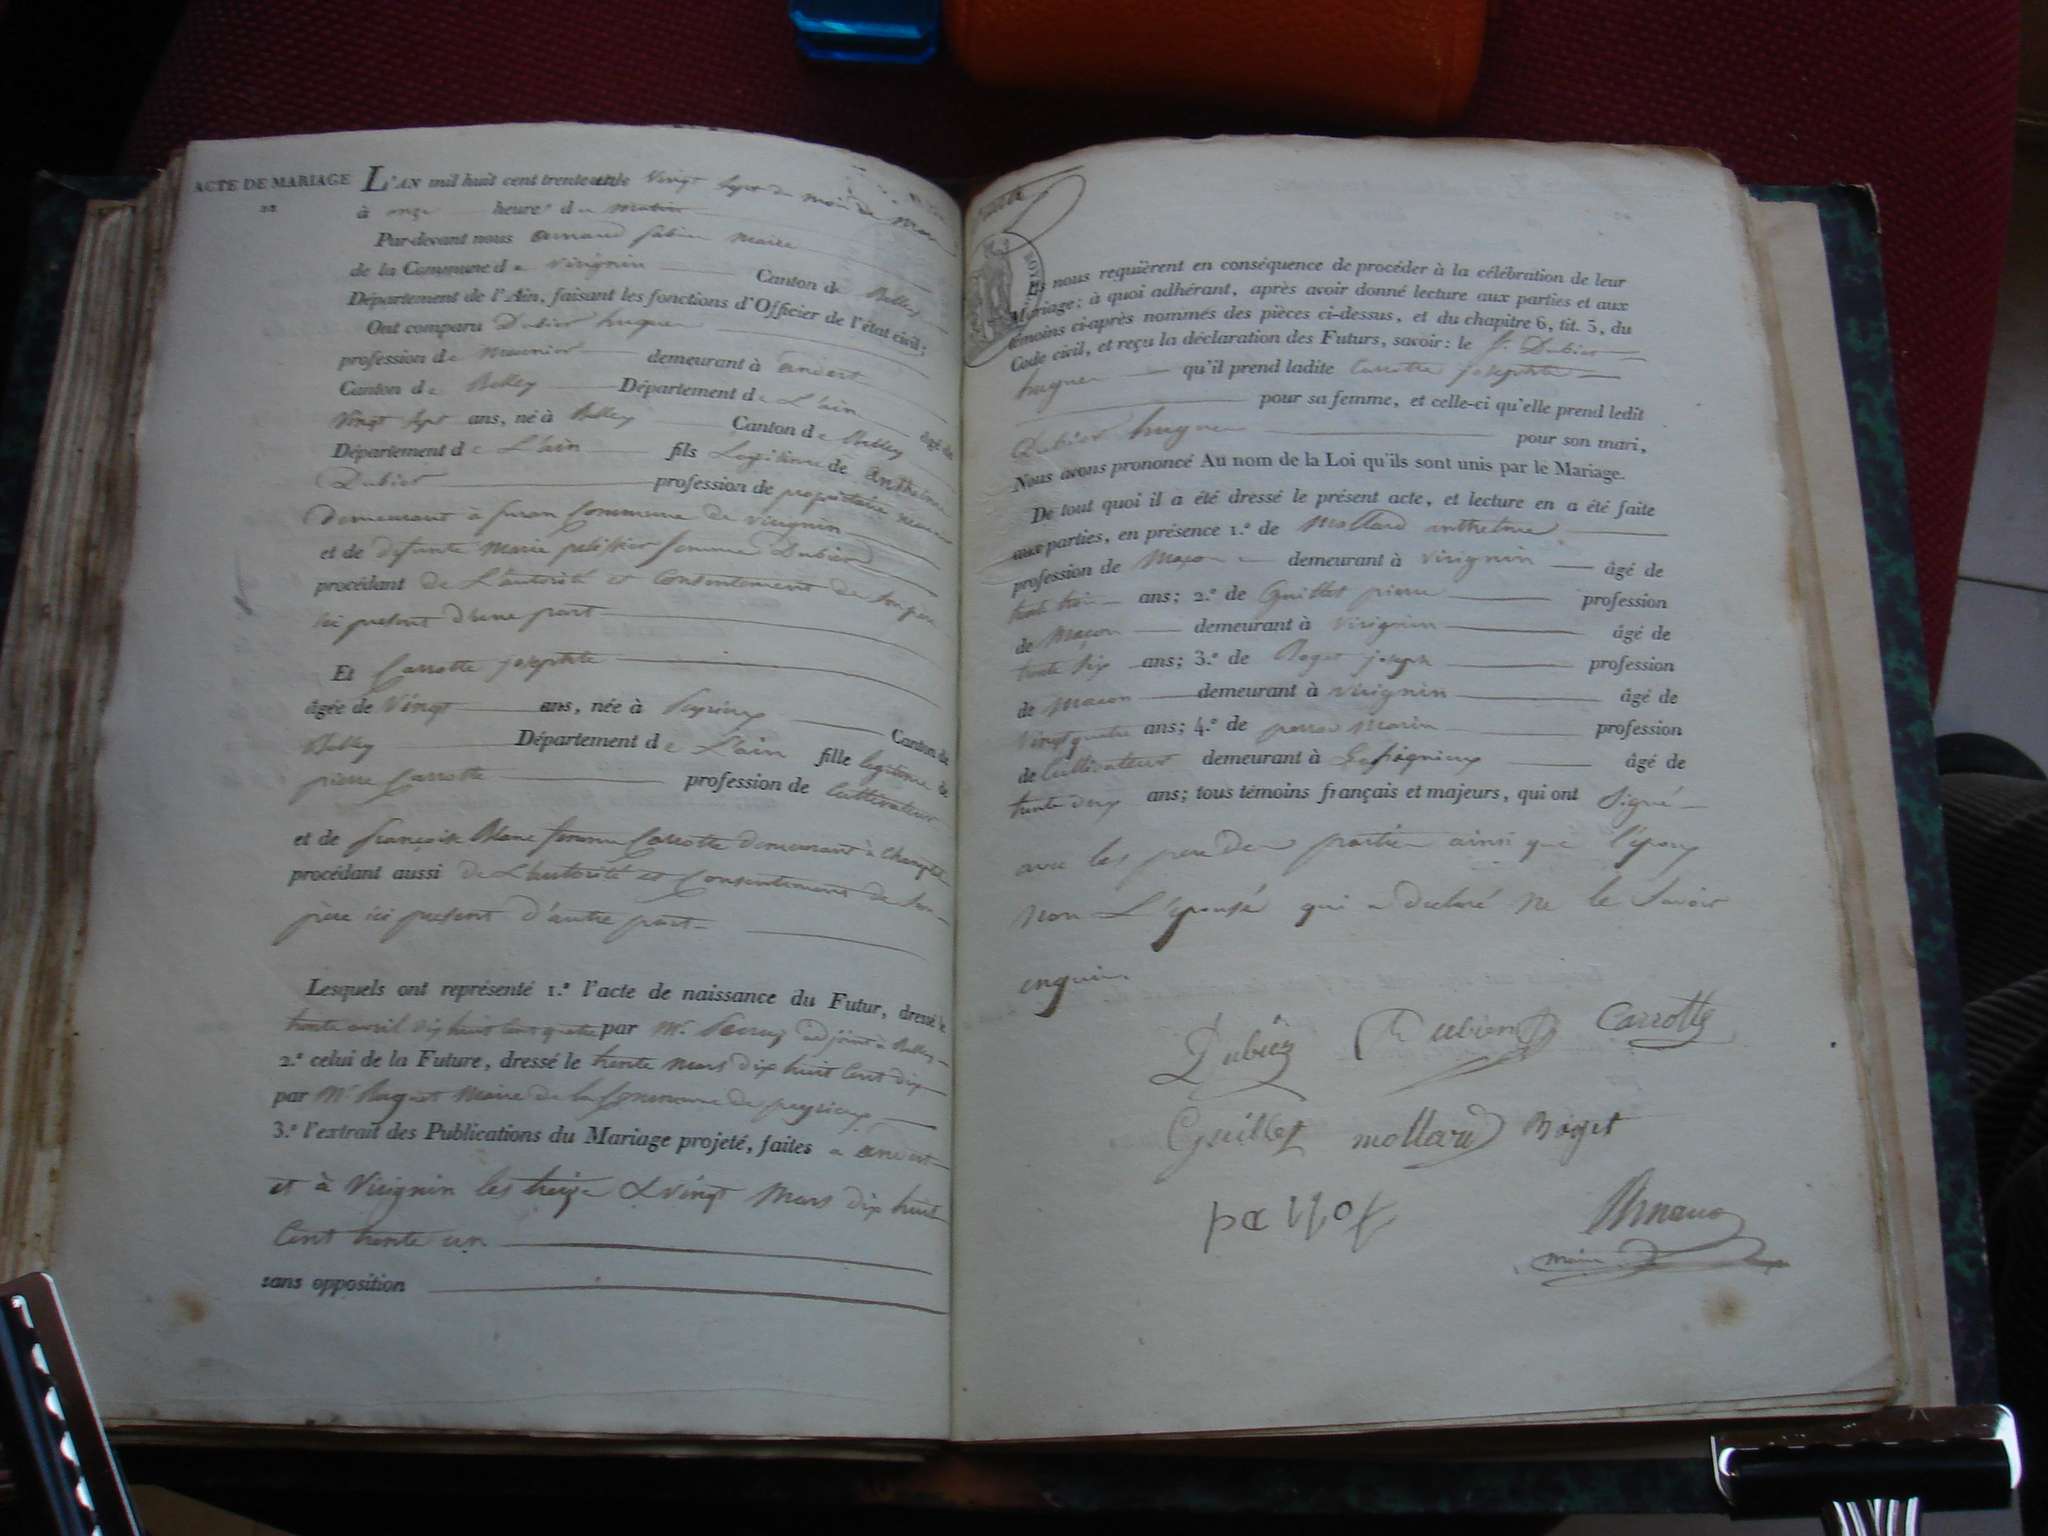 ACTE DE MARIAGE L'AN mil huit cent trente un le vingt sept du mois de mars
à onze heures du matin
Par-devant nous arnaud fabien maire
de la Commune de virignin Canton de Belley
Département de l'Ain, faisant les fonctions d'Officier de l'état civil;
Ont comparu Dubier hugues
profession de demeurant à andert
Canton de Belley Département de L'ain âgé de
vingt sept ans, né à Belley Canton de Belley
Département de L'ain fils Legitime de anthelme
Dubier profession de propriétaire
demeurant à Commune de virignin
et de defunte marie pelissier femme Dubier
procédant de L'autorité et Consentement de son père
ici présent d'une part
Et Carrotte josephte
âgée de vingt ans, née à peyrieux Canton de
Belley Département de L'ain fille legitime de
pierre Carrotte profession de Cultivateur
et de françoise Blanc femme Carrotte demeurant à
procédant aussi de L'autorité et Consentement de son
père ici présent d'autre part
Lesquels ont représenté 1.º l'acte de naissance du Futur, dressé le
trente avril dix huit cent quatre par Mr adjoint à Belley
2.º celui de la Future, dressé le trente mars dix huit Cent dix
par Mr Maire de la Commune de peyrieux
3.º l'extrait des Publications du Mariage projeté, faites a andert
et à Virignin les treize & vingt mars dix huit
Cent trente un
sans opposition
ROY
Et nous requièrent en conséquence de procéder à la célébration de leur
Mariage; à quoi adhérant, après avoir donné lecture aux parties et aux
témoins ci-après nommés des pièces ci-dessus, et du chapitre 6, tit. 5, du
Code civil, et reçu la déclaration des Futurs, savoir: le Dubier
hugues qu'il prend ladite Carrotte josephte
pour sa femme, et celle-ci qu'elle prend ledit
Dubier hugues pour son mari,
Nous avons prononcé Au nom de la Loi qu'ils sont unis par le Mariage.
De tout quoi il a été dressé le présent acte, et lecture en a été faite
aux parties, en présence 1.º de Mollard anthelme
profession de Maçon demeurant à virignin âgé de
trente trois ans; 2.º de Guillet pierre profession
de Maçon demeurant à virignin âgé de
trente six ans; 3.º de Roget joseph profession
de Macon demeurant à virignin âgé de
vingt quatre ans; 4.º de profession
de Cultivateur demeurant à âgé de
trente deux ans; tous témoins français et majeurs, qui ont signé
avec les peres des parties ainsi que l'époux
non L'épouse qui a déclaré ne le savoir
enquise
Dubier Dubier Carrotte
Guillet mollard Roget
Arnaud
maire